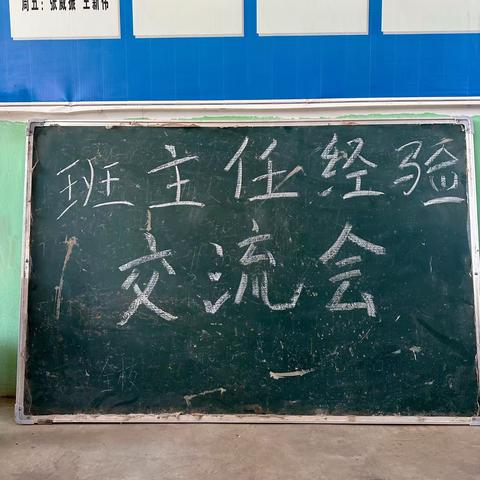 周五：张威振 王新伟
班主任经验
交流会